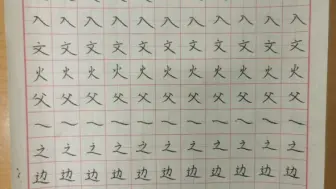 入 入 入 入 入 入 入 入 入 入 入
文 文 文 文 文 文 文 文 文 文 文
火 火 火 火 火 火 火 火 火 火 火
父 父 父 父 父 父 父 父 父 父 父
㇏ ㇏ ㇏ ㇏ ㇏ ㇏ ㇏ ㇏ ㇏ ㇏ ㇏
之 之 之 之 之 之 之 之 之 之 之
边 边 边 边 边 边 边 边 边 边 边